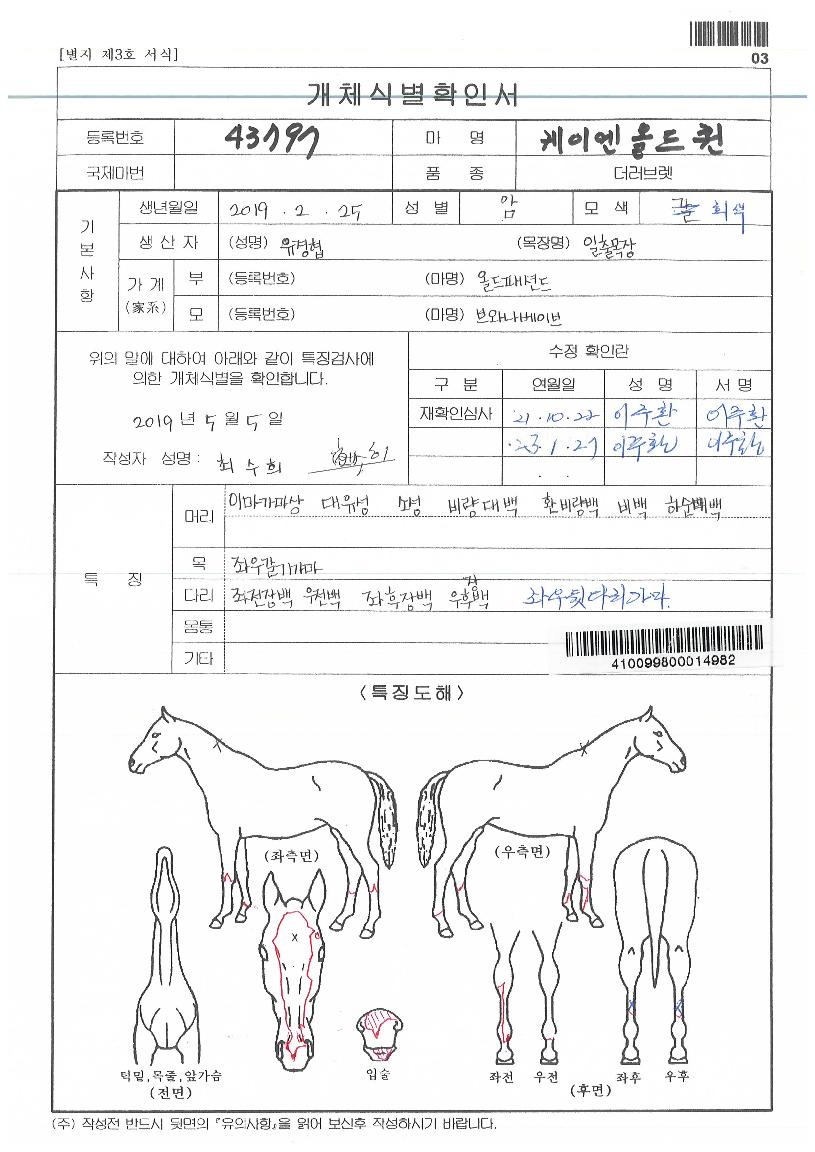 [별지 제3호 서식]
03
개체식별확인서
등록번호 43797 마 명 케이엔올드퀸
국제마번 품 종 더러브렛
기본사항
생년월일 2019 . 2 . 25 성 별 암 모 색 회색
생 산 자 (성명) 유경협 (목장명) 일출목장
가 계 (家系)
부 (등록번호) (마명) 올드패션드
모 (등록번호) (마명) 브와나베이브
위의 말에 대하여 아래와 같이 특징검사에
의한 개체식별을 확인합니다.
2019 년 5 월 5 일
작성자 성명 : 최수희
수정 확인란
구 분 연월일 성 명 서 명
재확인심사 '21 . 10 . 22 이주환 이주환
'23 . 1 . 27 이주환 이주환
특 징
머리 이마가마상 대유성 비량대백 환비량백 비백
목 좌우갈기가마
다리 좌전장백 우전백 좌후장백 우후장백 좌우뒷다리가마.
몸통
기타
410099800014982
<특징도해>
(좌측면) (우측면)
턱밑,목줄,앞가슴
(전면)
입술
좌전 우전 좌후 우후
(후면)
(주) 작성전 반드시 뒷면의 『유의사항』을 읽어 보신후 작성하시기 바랍니다.